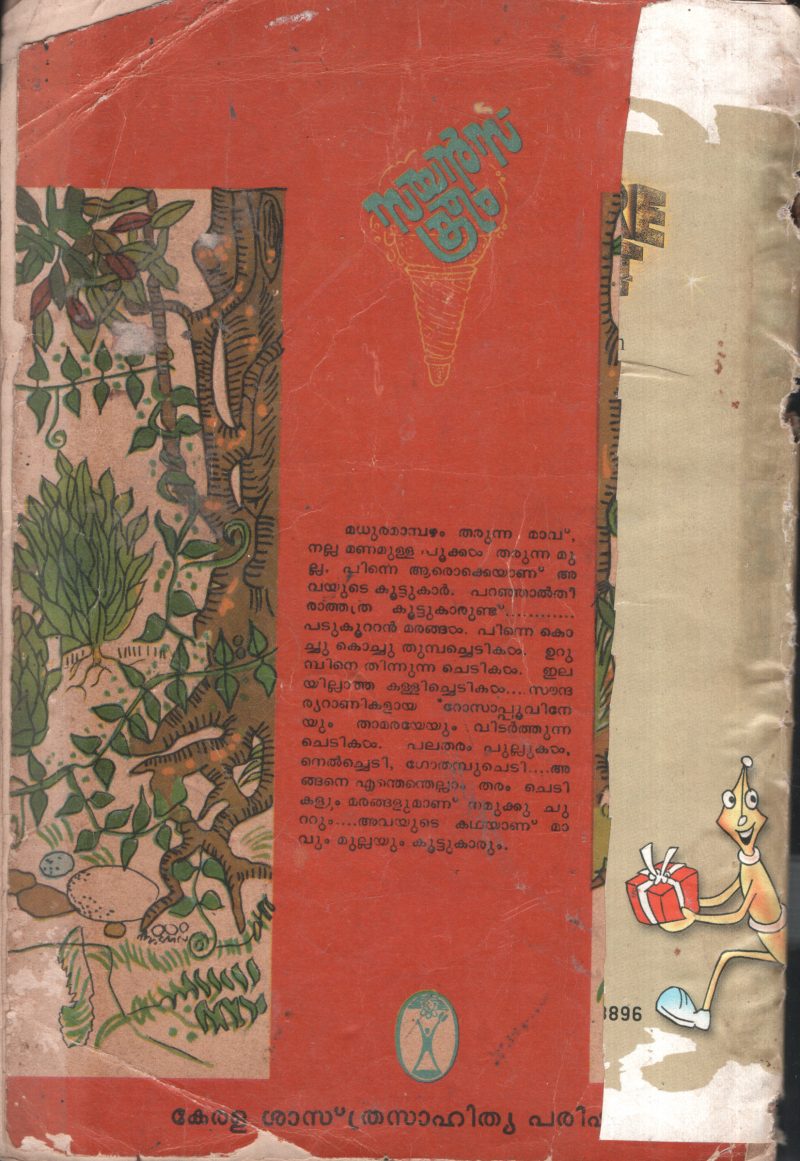 സയൻസ്
ക്രീം
RE
T
മധുരമാമ്പഴം തരുന്ന മാവ്,
നല്ല മണമുള്ള പൂക്കൾ തരുന്ന മു
ല്ല. പിന്നെ ആരൊക്കെയാണ് അ
വയുടെ കൂട്ടുകാർ. പറഞ്ഞാൽതീ
രാത്തത്ര കൂട്ടുകാരുണ്ട്............
പടുകൂററൻ മരങ്ങൾ. പിന്നെ കൊ
ച്ചു കൊച്ചു തുമ്പച്ചെടികൾ. ഉറു
മ്പിനെ തിന്നുന്ന ചെടികൾ. ഇല
യില്ലാത്ത കള്ളിച്ചെടികൾ....സൗന്ദ
ര്യറാണികളായ റോസാപ്പൂവിനേ
യും താമരയേയും വിടർത്തുന്ന
ചെടികൾ. പലതരം പുല്ലുകൾ,
നെൽച്ചെടി, ഗോതമ്പുചെടി....അ
ങ്ങനെ എന്തെന്തെല്ലാം തരം ചെടി
കളും മരങ്ങളുമാണ് നമുക്കു ചു
ററും....അവയുടെ കഥയാണ് മാ
വും മുല്ലയും കൂട്ടുകാരും.
8896
കേരള ശാസ്ത്രസാഹിത്യ പരിഷ